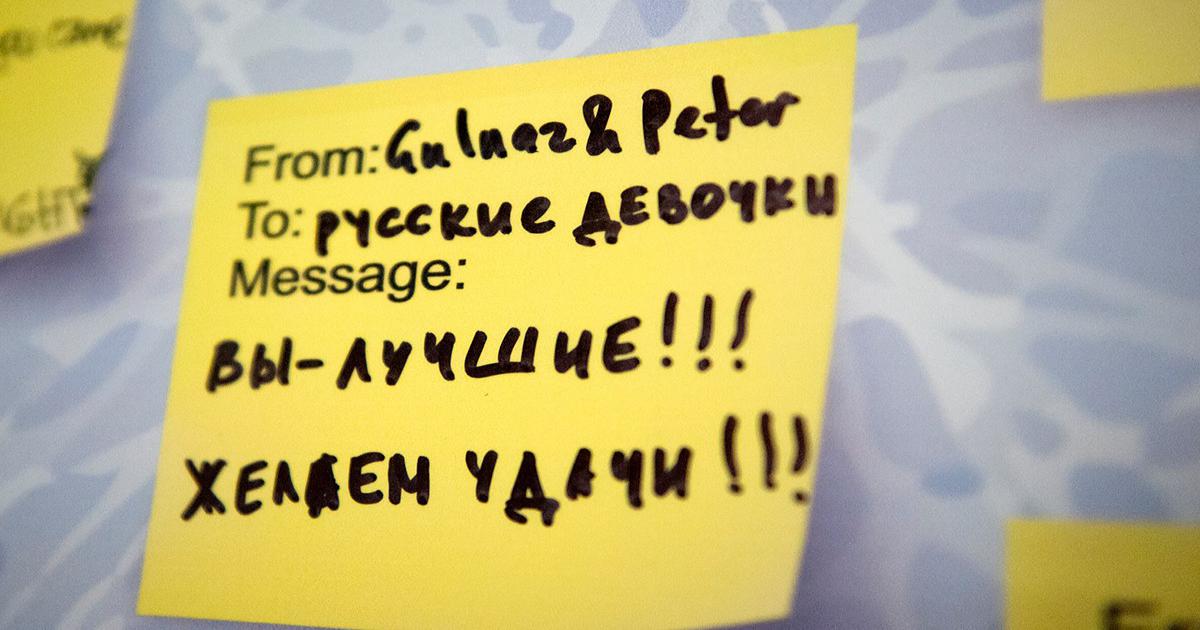 From: Gulnaz & Peter
To: русские ДЕВОЧКИ
Message:
ВЫ - ЛУЧШИЕ!!!
ЖЕЛАЕМ УДАЧИ!!!
came
IGHT